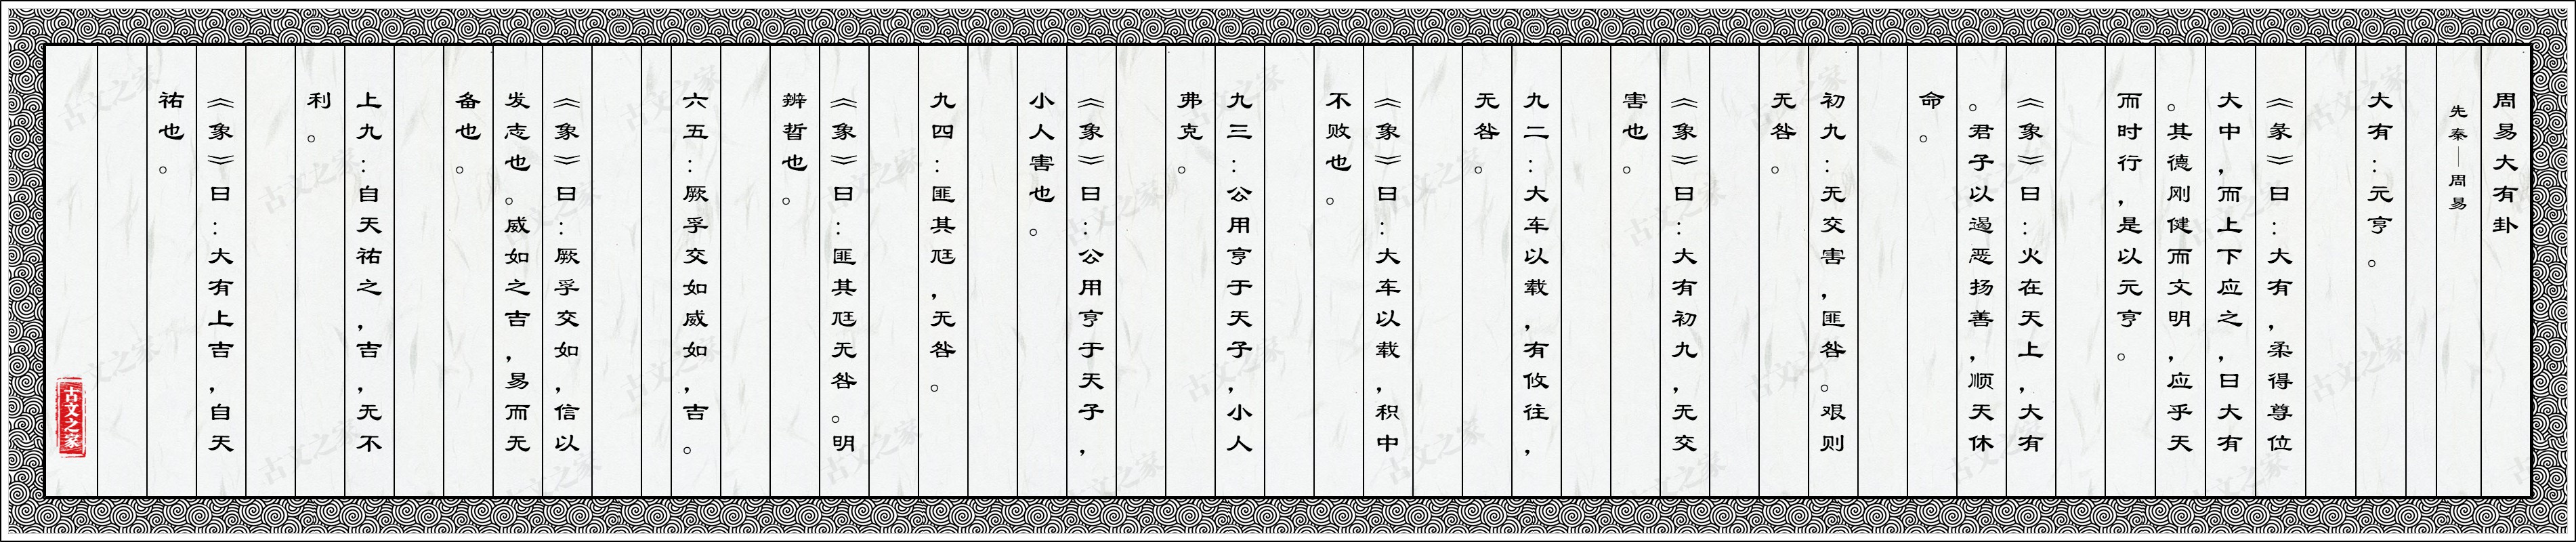 周易大有卦
先秦—周易
大有：元亨。
《彖》曰：大有，柔得尊位
大中，而上下应之，曰大有
。其德刚健而文明，应乎天
而时行，是以元亨。
《象》曰：火在天上，大有
。君子以遏恶扬善，顺天休
命。
初九：无交害，匪咎。艰则
无咎。
《象》曰：大有初九，无交
害也。
九二：大车以载，有攸往，
无咎。
《象》曰：大车以载，积中
不败也。
九三：公用亨于天子，小人
弗克。
《象》曰：公用亨于天子，
小人害也。
九四：匪其尪，无咎。
《象》曰：匪其尪无咎。明
辨哲也。
六五：厥孚交如威如，吉。
《象》曰：厥孚交如，信以
发志也。威如之吉，易而无
备也。
上九：自天祐之，吉，无不
利。
《象》曰：大有上吉，自天
祐也。
古文之家